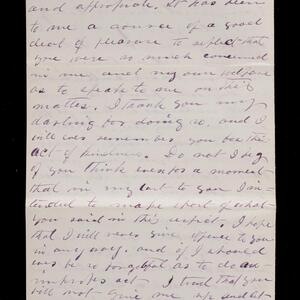 and appropriate. It has been
to me a source of a good
deal of pleasure to reflect that
you were so much concerned
in me and my own welfare
as to speak to me on this
matter. I thank you my
darling for doing so, and I
will ever remember you for the
act of kindness. Do not I beg
of you think even for a moment
that in my last to you I in-
tended to make sport of what
you said in this respect. I hope
that I will never give offence to you
in any way, and if I should
ever be so forgetful as to do an
improper act I trust that you
will not give me up until